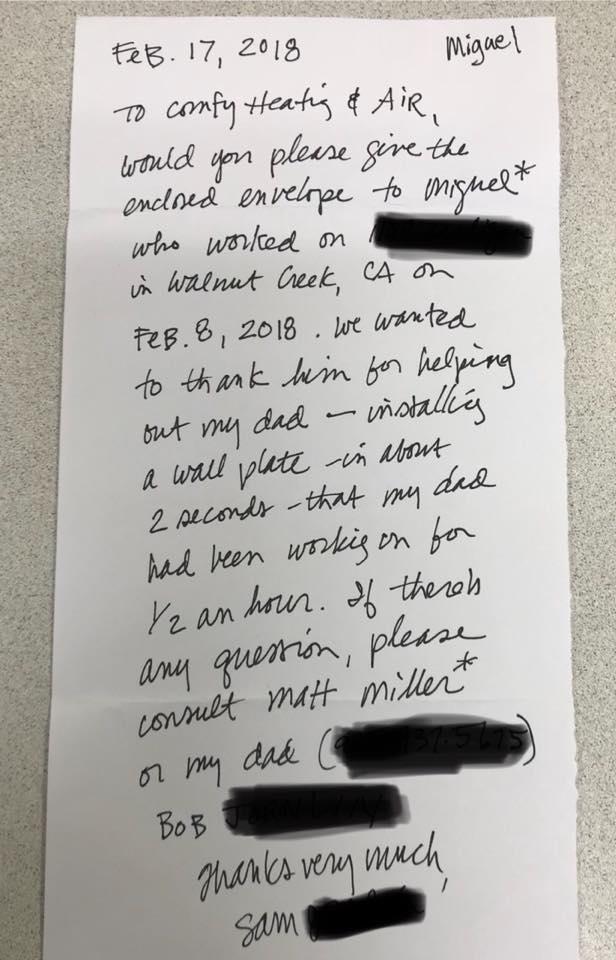 FeB. 17, 2018 Miguel
To Comfy Heatig & AiR,
would you please give the
enclosed envelope to Miguel*
who worked on
in Walnut Creek, CA on
FeB. 8, 2018. We wanted
to thank him for helping
out my dad – installig
a wall plate – in about
2 seconds – that my dad
had been workig on for
1/2 an hour. If there's
any question, please
consult Matt Miller*
or my dad ( )
BoB
Thanks very much,
Sam